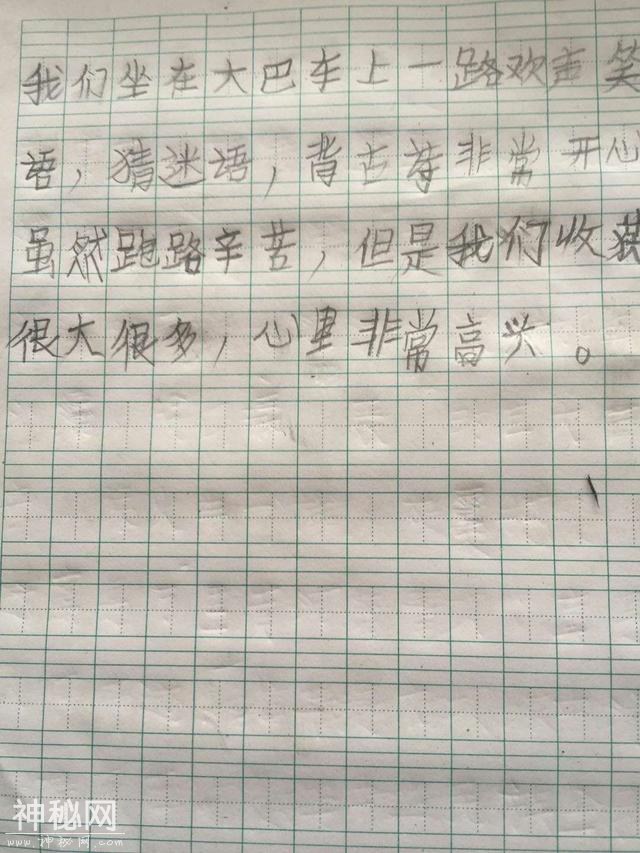 我们坐在大巴车上一路欢声笑
语，猜迷语，背古诗非常开心
虽然跑路辛苦，但是我们收获
很大很多，心里非常高兴。
神秘网
www.神秘网.com